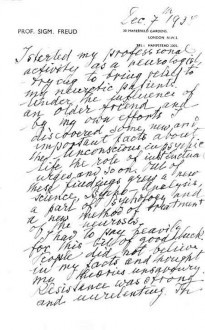 PROF. SIGM. FREUD
Dec. 7th
LONDON N.W.3.
I started my professional
activity as a neurologist
trying to bring relief to
my neurotic patients.
Under the influence of
an older friend and
by my own efforts I
discovered some new and
important facts about
the unconscious in psychic
life the role of instinctual
urges and so on. Out of
these findings grew a new
science, Psycho-Analysis,
a part of Psychology and
a new method of treatment
of the neuroses.
I had to pay heavily
for this bit of good luck.
People did not believe
in my facts and thought
my theories unsavoury.
Resistance was strong
and unrelenting. In